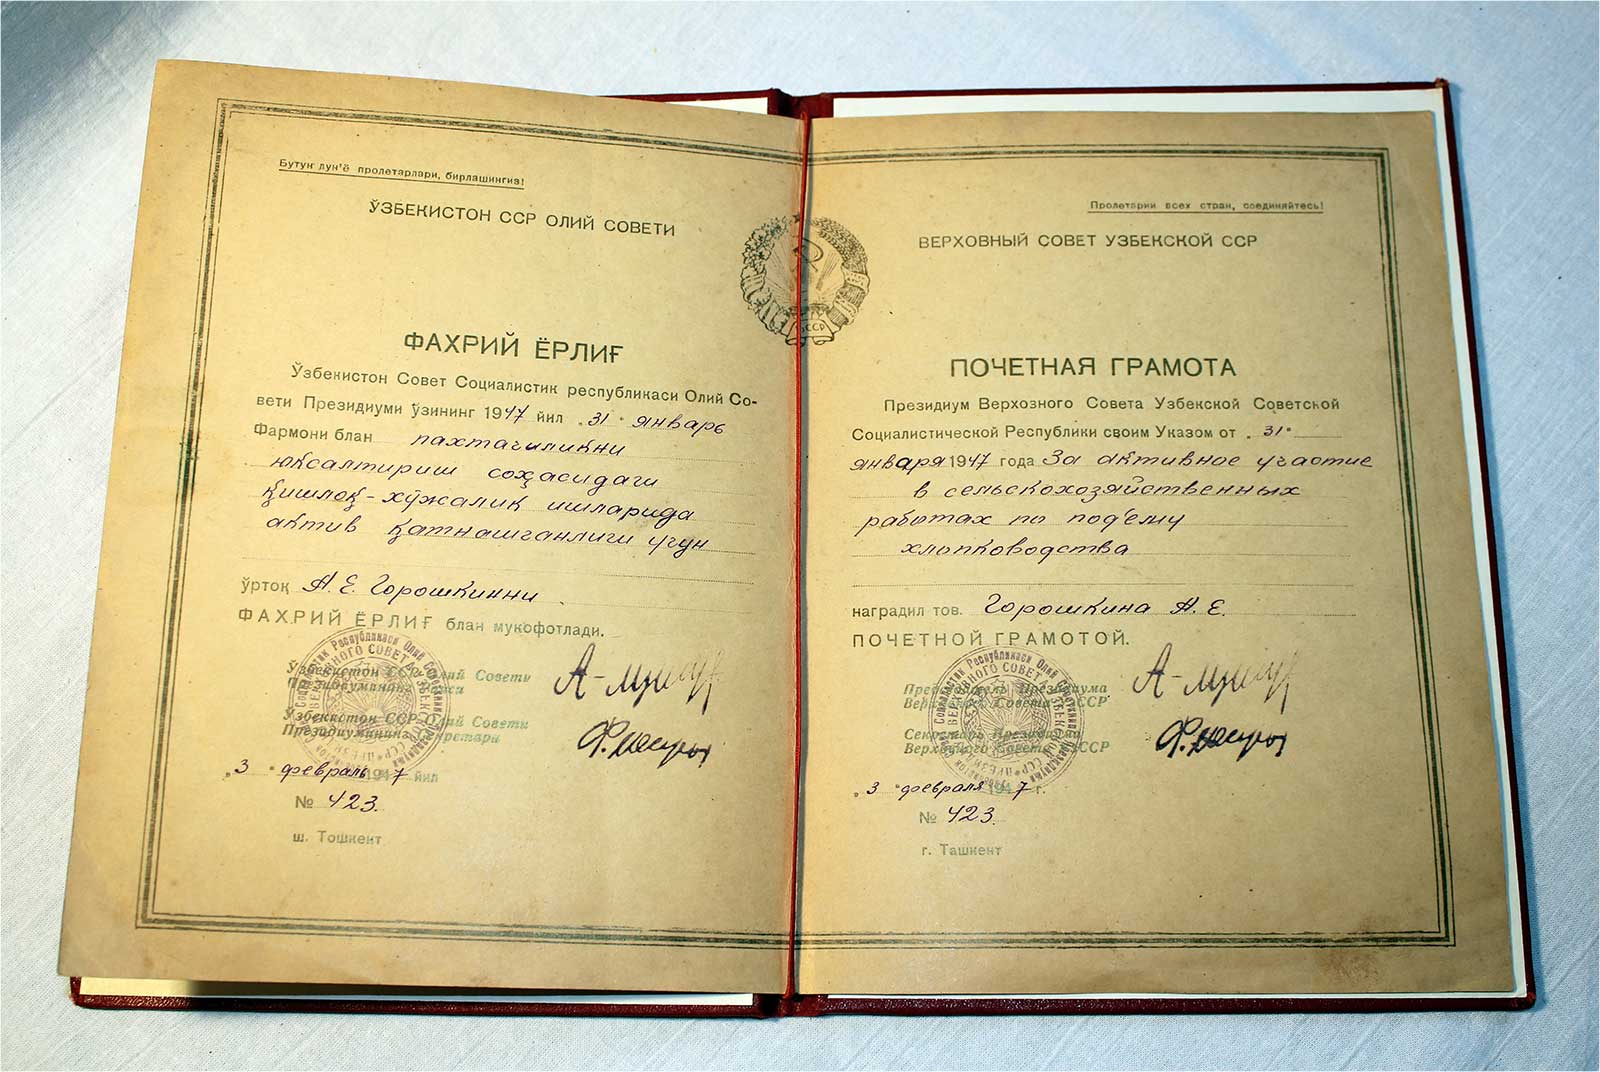 Бутун дун'ё пролетарлари, бирлашингиз!
ЎЗБЕКИСТОН ССР ОЛИЙ СОВЕТИ
ФАХРИЙ ЁРЛИҒ
Ўзбекистон Совет Социалистик республикаси Олий Со-
вети Президиуми ўзининг 1947 йил „31" январь
Фармони блан пахтачиликни
юксалтириш соҳасидаги
қишлоқ-хўжалик ишларида
актив қатнашганлиги учун
ўртоқ А. Е. Горошкинни
ФАХРИЙ ЁРЛИҒ блан мукофотлади.
Ўзбекистон ССР Олий Совети
Президиумининг Раиси
Ўзбекистон ССР Олий Совети
Президиумининг Секретари
„3" февраль 1947 йил
№ 423.
ш. Тошкент
ССР
Пролетарии всех стран, соединяйтесь!
ВЕРХОВНЫЙ СОВЕТ УЗБЕКСКОЙ ССР
ПОЧЕТНАЯ ГРАМОТА
Президиум Верхозного Совета Узбекской Советской
Социалистической Республики своим Указом от „31"
января 1947 года За активное участие
в сельскохозяйственных
работах по под'ему
хлопководства
наградил тов. Горошкина А. Е.
ПОЧЕТНОЙ ГРАМОТОЙ.
Председатель Президиума
Верховного Совета УзССР
Секретарь Президиума
Верховного Совета УзССР
„3" февраля 1947 г.
№ 423.
г. Ташкент